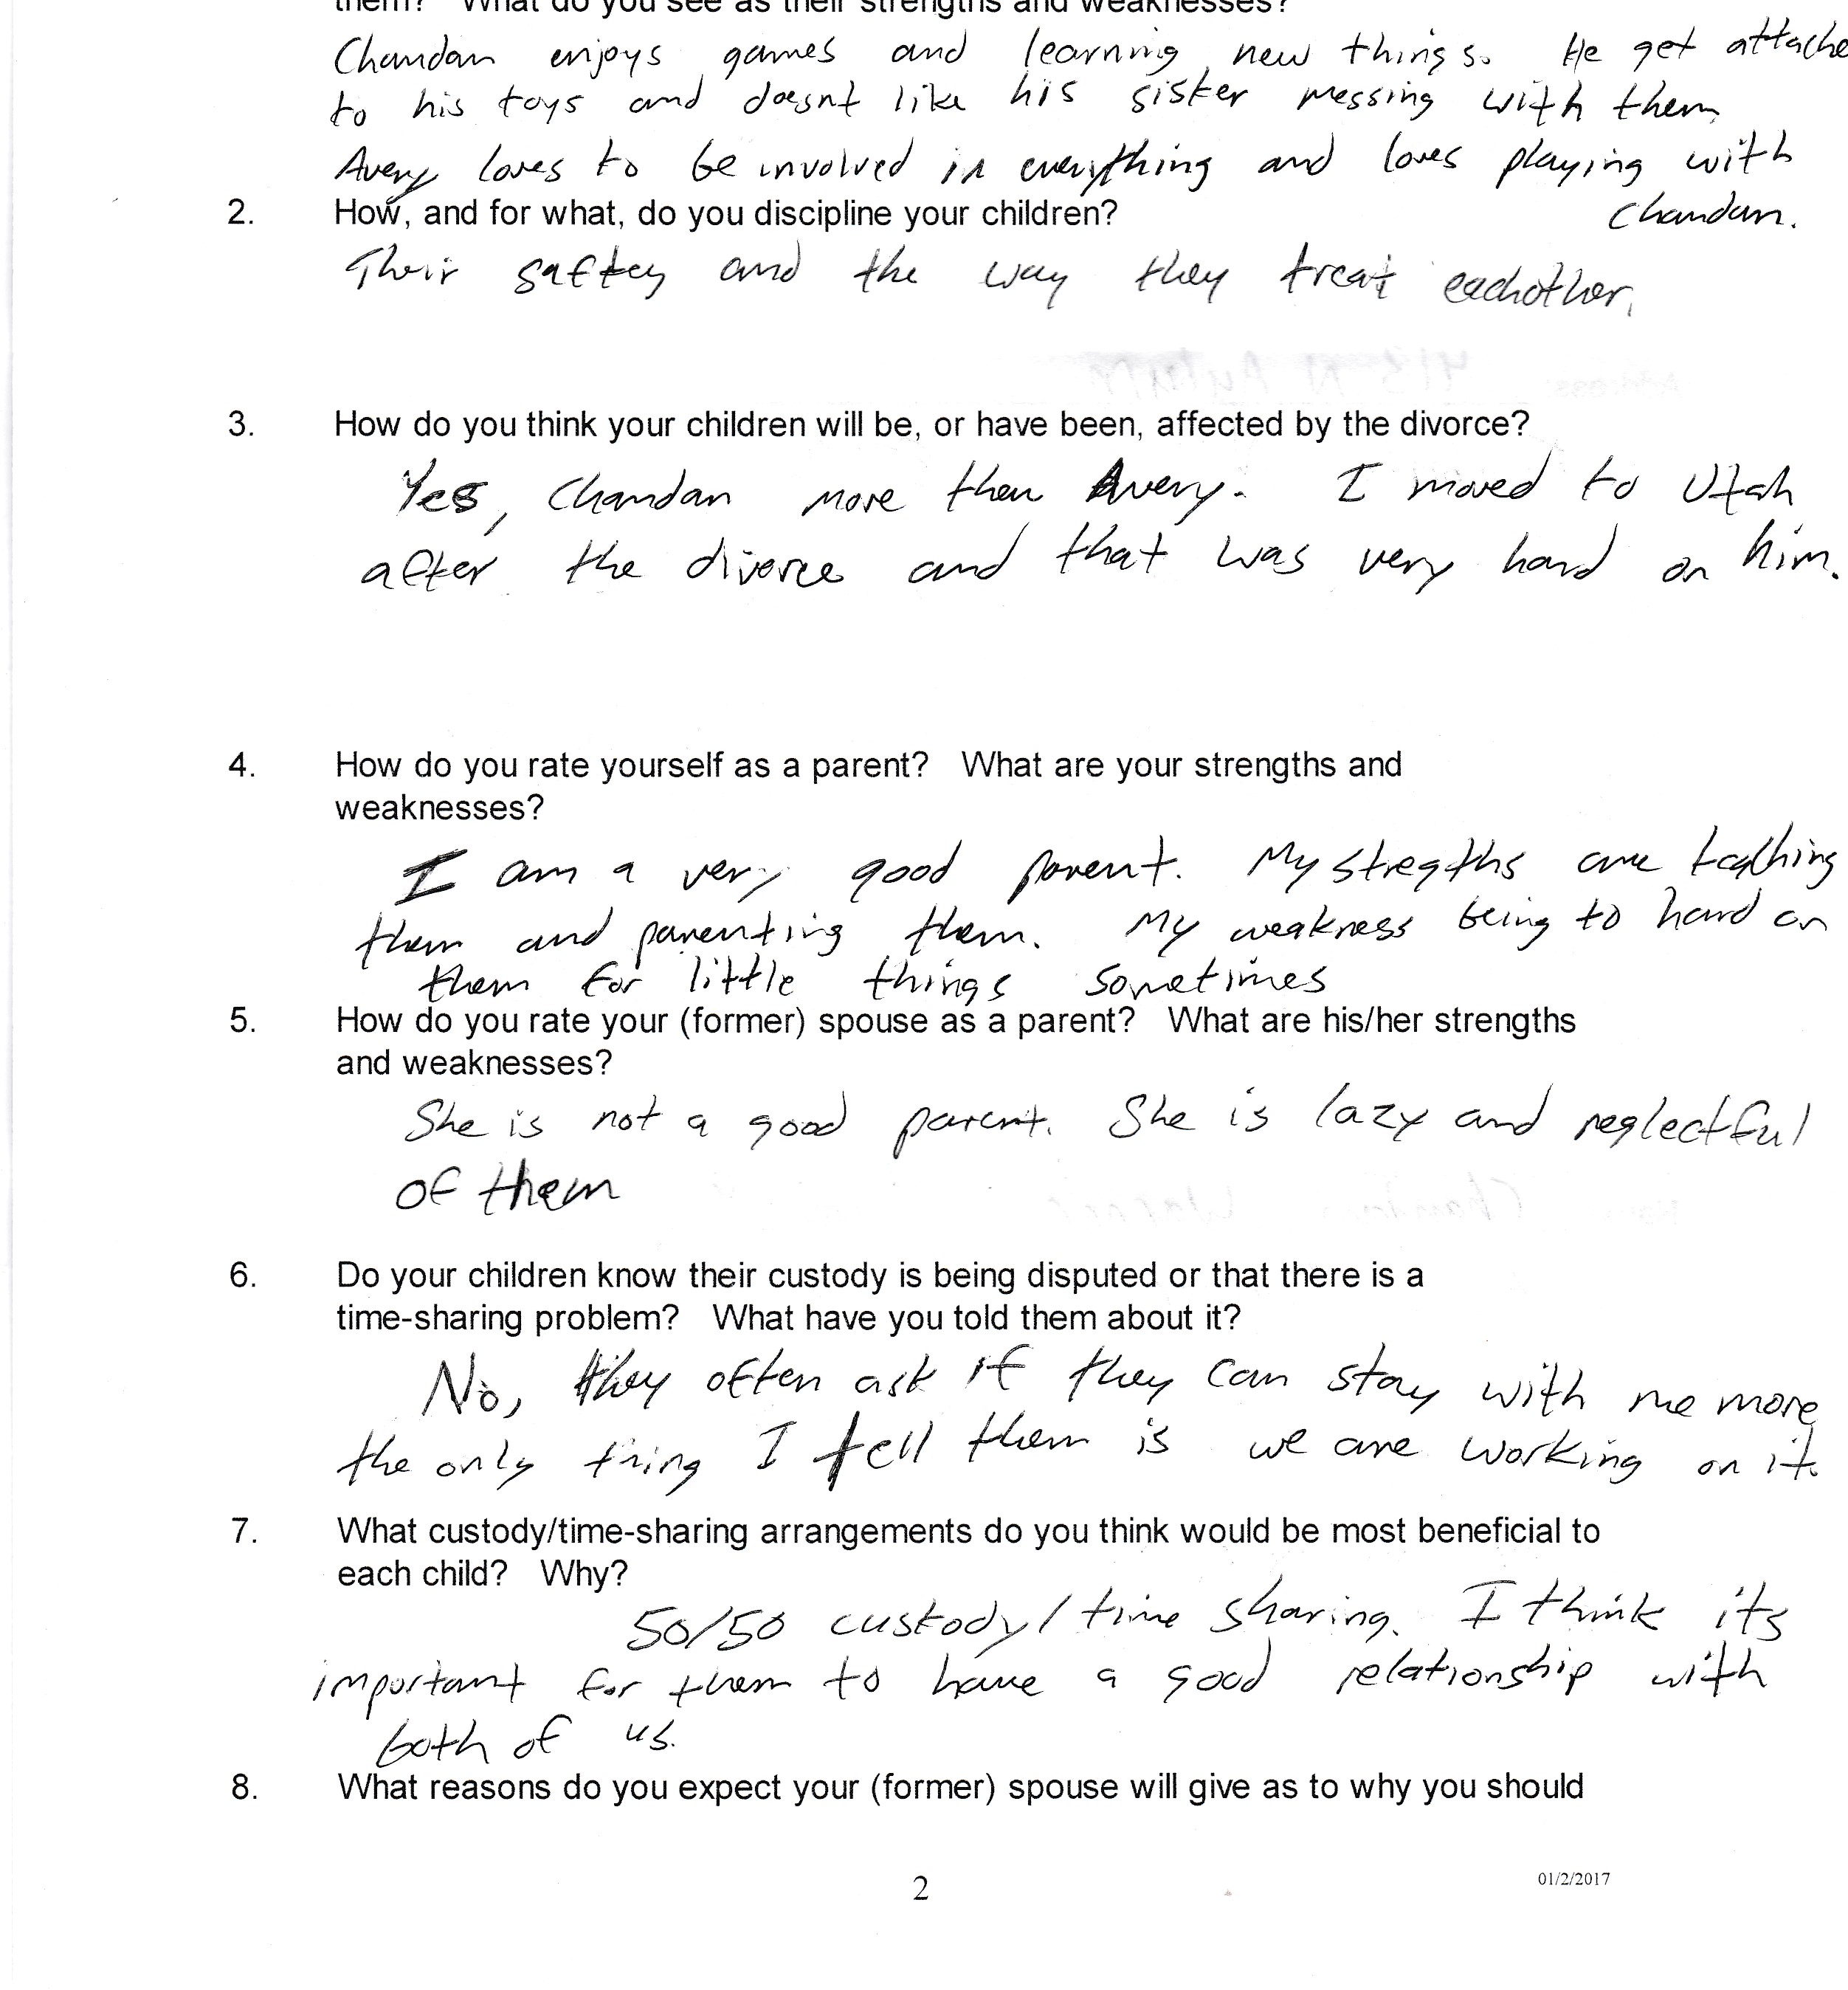 them? What do you see as their strengths and weaknesses?
Chandan enjoys games and learning new things. He get attache
to his toys and doesnt like his sister messing with them.
Avery loves to be involved in everything and loves playing with
Chandan.
2. How, and for what, do you discipline your children?
Their saftey and the way they treat eachother.
3. How do you think your children will be, or have been, affected by the divorce?
Yes, Chandan more then Avery. I moved to Utah
after the divorce and that was very hard on him.
4. How do you rate yourself as a parent? What are your strengths and
weaknesses?
I am a very good parent. My stregths are
them and parenting them. My weakness being to hard on
them for little things sometimes
5. How do you rate your (former) spouse as a parent? What are his/her strengths
and weaknesses?
She is not a good parent. She is lazy and neglectful
of them
6. Do your children know their custody is being disputed or that there is a
time-sharing problem? What have you told them about it?
No, they often ask if they can stay with me more
the only thing I tell them is we are working on it.
7. What custody/time-sharing arrangements do you think would be most beneficial to
each child? Why?
50/50 custody/time sharing. I think its
important for them to have a good relationship with
both of us.
8. What reasons do you expect your (former) spouse will give as to why you should
2
01/2/2017